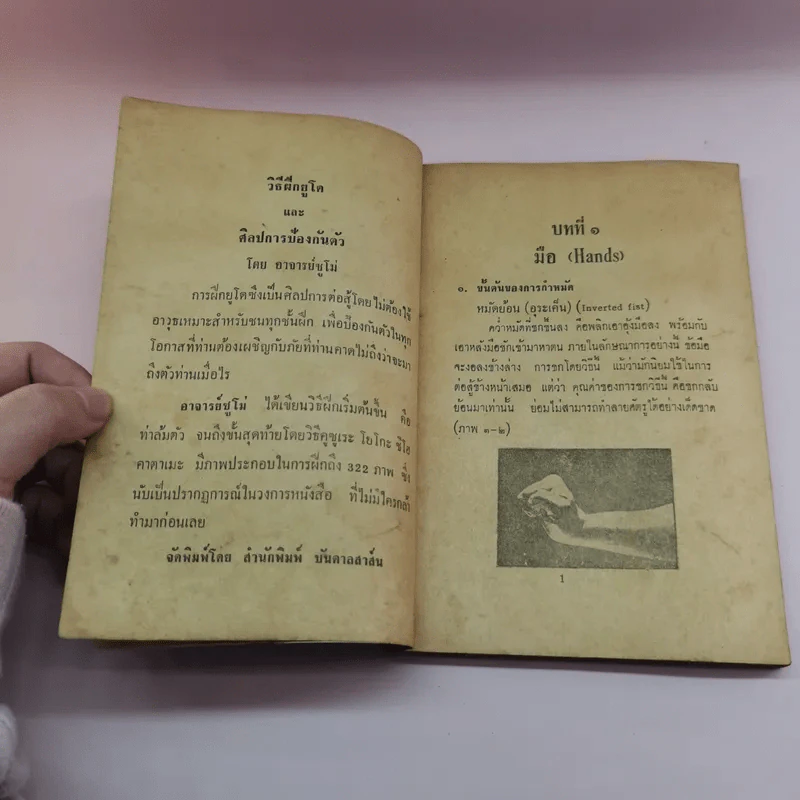 วิธีฝึกยูโด
และ
ศิลปการป้องกันตัว
โดย อาจารย์ชูโม่
การฝึกยูโดซึ่งเป็นศิลปการต่อสู้โดยไม่ต้องใช้
อาวุธเหมาะสำหรับชนทุกชั้นฝึก เพื่อป้องกันตัวในทุก
โอกาสที่ท่านต้องเผชิญกับภัยที่ท่านคาดไม่ถึงว่าจะมา
ถึงตัวท่านเมื่อไร
อาจารย์ชูโม่ ได้เขียนวิธีฝึกเริ่มต้นขึ้น คือ
ท่าล้มตัว จนถึงขั้นสุดท้ายโดยวิธีคูซูเระ โยโกะ ชิโฮ
คาตาเมะ มีภาพประกอบในการฝึกถึง 322 ภาพ ซึ่ง
นับเป็นปรากฏการณ์ในวงการหนังสือ ที่ไม่มีใครกล้า
ทำมาก่อนเลย
จัดพิมพ์โดย สำนักพิมพ์ บันดาลสาส์น
บทที่ ๑
มือ (Hands)
๑. ขั้นต้นของการกำหมัด
หมัดย้อน (อุระเค็น) (Inverted fist)
คว่ำหมัดที่ชกขึ้นลง คือพลิกเอาอุ้งมือลง พร้อมกับ
เอาหลังมือชักเข้ามาหาตน ภายในลักษณาการอย่างนี้ ข้อมือ
จะงอลงข้างล่าง การชกโดยวิธีนี้ แม้ว่ามักนิยมใช้ในการ
ต่อสู้ข้างหน้าเสมอ แต่ว่า คุณค่าของการชกวิธีนี้ คือชกกลับ
ย้อนมาเท่านั้น ย่อมไม่สามารถทำลายศัตรูได้อย่างเด็ดขาด
(ภาพ ๑-๒)
1